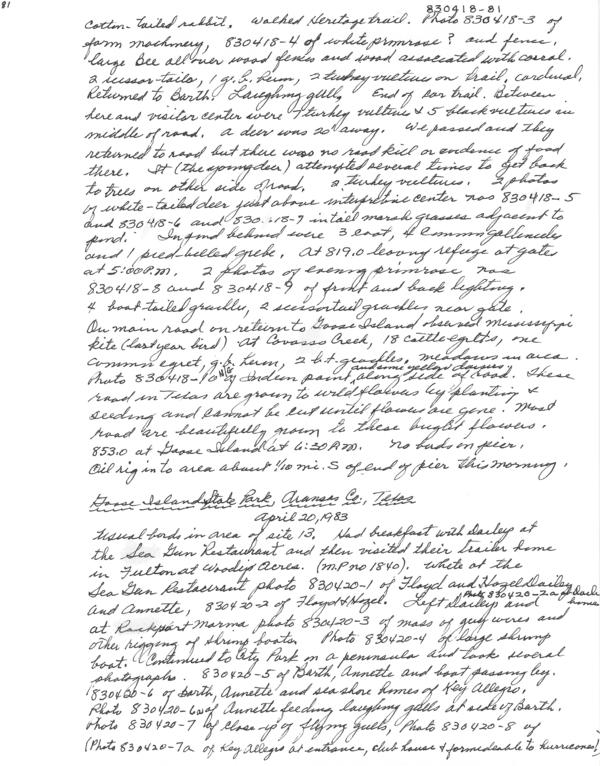 81
830418-81
cotton-tailed rabbit. Walked Heritage trail. Photo 830418-3 of
farm machinery, 830418-4 of white primrose? and fence,
large Bee all over wood fences and wood associated with corral.
2 scissor-tails, 1 g.b. heron, 2 turkey vultures on trail, cardinal,
Returned to Barth. Laughing gull, End of our trail. Between
here and visitor center were 7 turkey vulture & 5 black vultures in
middle of road. A deer was 20' away. We passed and they
returned to road but there was no road kill or evidence of food
there. It (the young deer) attempted several times to get back
to trees on other side of road. 2 turkey vultures. 2 photos
of white-tailed deer just above interpretive center nos 830418-5
and 830418-6 and 830418-7 in tall marsh grasses adjacent to
pond. In pond behind were 3 coot, 4 common gallinules
and 1 pied-billed grebe. At 819.0 leaving refuge at gates
at 5:00 P.M. 2 photos of evening primrose nos
830418-8 and 830418-9 of front and back lighting.
4 boat tailed grackles, 2 scissortail grackles near gate.
On main road on return to Goose Island observed Mississippi
kite (last year bird) At Covasso Creek, 18 cattle egrets, one
common egret, g.b. heron, 2 b.t. grackles, meadows in area.
Photo 830418-10 of Indian paint, and some yellow daisies, along side of road. These
road in Texas are grown to wild flowers by planting &
seeding and cannot be cut until flowers are gone. Most
road are beautifully grown to these bright flowers.
853.0 at Goose Island at 6:30 P.M. No birds on pier.
Oil rig in to area about 1/10 mi. S of end of pier this morning.
Goose Island State Park, Aransas Co., Texas
April 20, 1983
Usual birds in area of site 13. Had breakfast with Dailey at
the Sea Gun Restaurant and then visited their trailer home
in Fulton at Woody's Acres. (M.P. no. 1840). While at the
Sea Gun Restaurant photo 830420-1 of Floyd and Hazel Dailey
and Annette, 830420-2 of Floyd & Hazel. Left Daileys and Photo 830420-2a of Daileys home
at Rockport Marina photo 830420-3 of mass of guy wires and
other rigging of shrimp boats. Photo 830420-4 of large shrimp
boat. Continued to City Park on a peninsula and took several
photographs. 830420-5 of Barth, Annette and boat passing by.
830420-6 of Barth, Annette and seashore homes of Key Allegro.
Photo 830420-6a of Annette feeding laughing gulls at side of Barth.
Photo 830420-7 of close-up of flying gulls, Photo 830420-8 of
(Photo 830420-7a of Key Allegro at entrance, club house & formidable to hurricanes!)